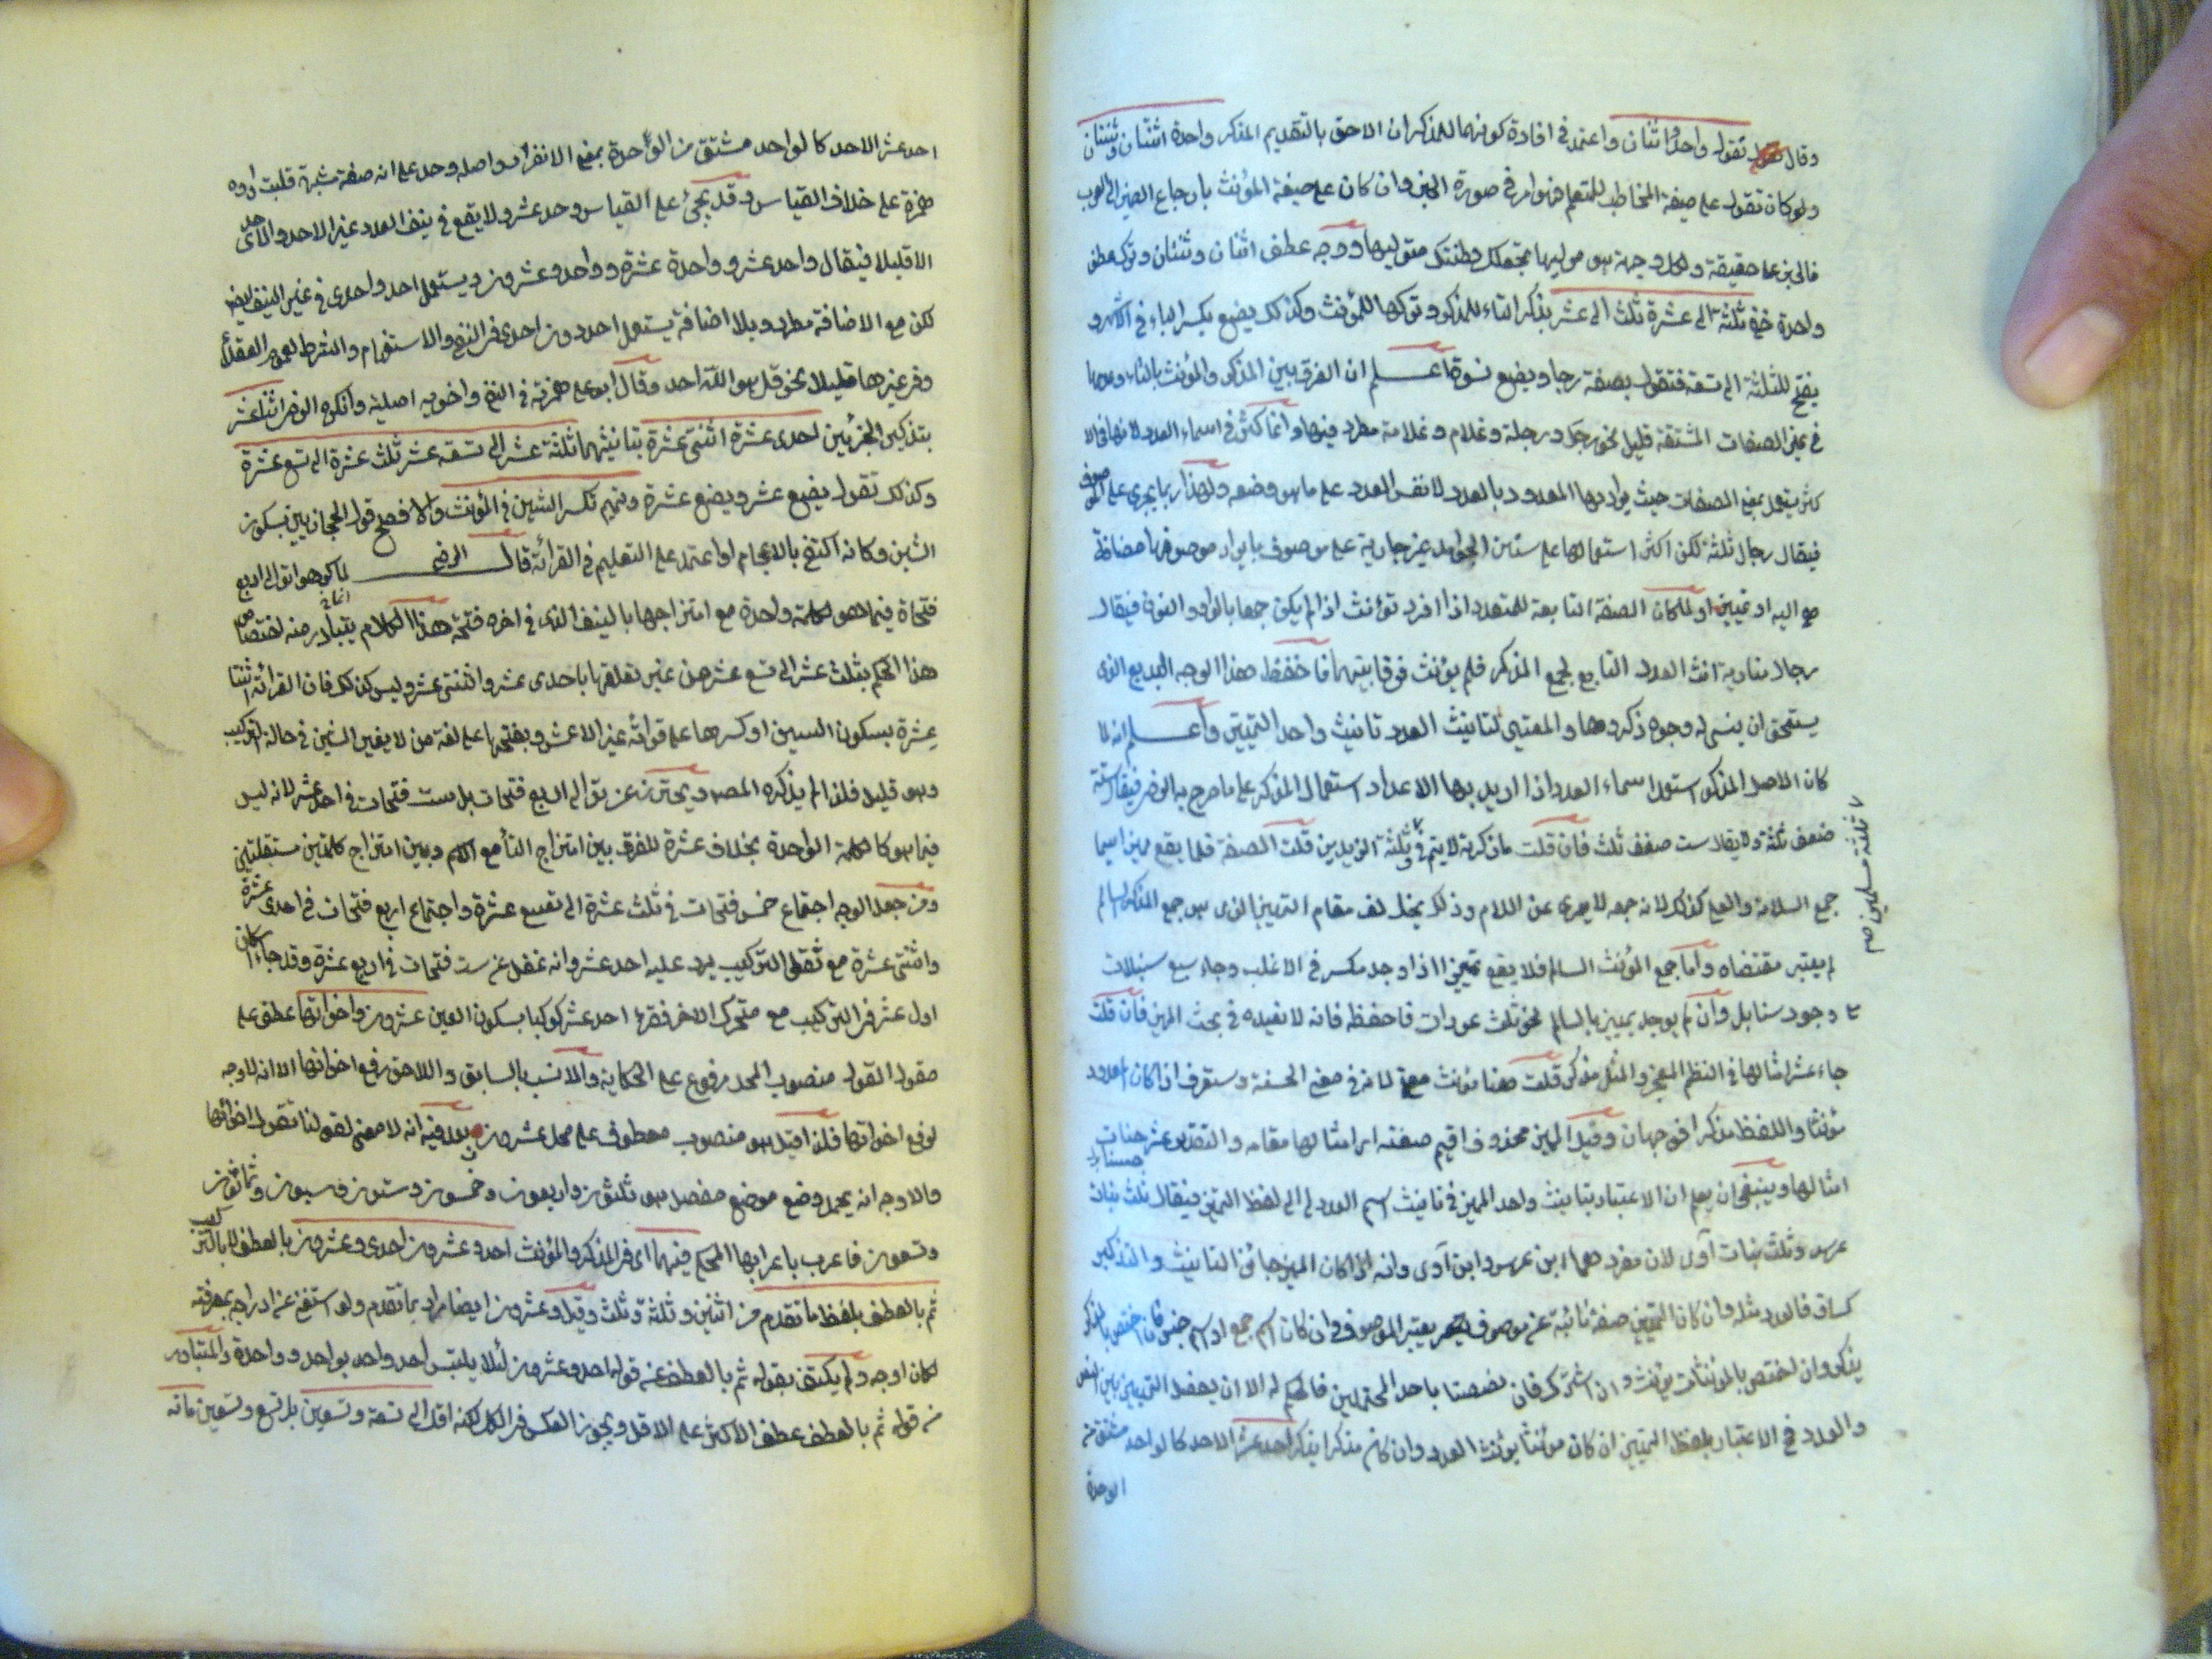 وقال تقول واحد اثنان واعتمد في افادة كونهما للمذكر ان الاحق بالتقديم المذكر واحدة اثنتان وثنتان
ولو كان تقول على صيغة المخاطب للمتعلم فهو امر في صورة الخبر وان كان على صيغة المؤنث بارجاع الضمير الى العرب
فالخبر على حقيقة ولكل وجهة هو موليها تجعلك فطنتك متوليها ووجه عطف اثنان وثنتان وترك عطف
واحدة خفي ثلثة الى عشرة ثلث الى عشر بذكر التاء للمذكر وتركها للمؤنث وكذلك بضع بكسر الباء في الاشهر و
يفتح للثلثة الى تسعة فتقول بضعة رجال وبضع نسوة اعلم ان الفرق بين المذكر والمؤنث بالتاء وعدمها
في غير الصفات المشتقة قليل نحو رجل ورجلة وغلام وغلامة مطرد فيها وانما كثر في اسماء العدد لانها في الا
كثر يستعمل بمعنى الصفات حيث يراد بها المعدود بالعدد لا نفس العدد على ما هو وضعه ولهذا ربما يجرى على الموصوف
فيقال رجال ثلثة لكن اكثر استعمالها على سنن الجوامد غير جارية على موصوف بايراد موصوفها مضافة
هي اليه او تمييزا ولما كان الصفة التابعة للمتعدد اذا افرد تؤنث اذا لم يكن جمعا بالواو والنون فيقال
رجال ضاربة انث العدد التابع لجمع المذكر فلم يؤنث فرقا بينهما فاحفظ هذا الوجه البديع الذى
يستحق ان ينسى له وجوه ذكروها والمعتبر لتانيث العدد تانيث واحد التمييز واعلم انه لما
كان الاصل المذكر استعمل اسماء العدد اذا اريد بها الاعداد استعمال المذكر على ما صرح به الرضى فيقال ستة
ضعف ثلثة ولا يقال ست ضعف ثلث فان قلت ما ذكرته لا يتم في ثلثة الزيدين قلت الصفة قلما يقع مميزا سيما
ثلثة مسلمين صح
جمع السلامة والعلم كذلك لانه جمعه لا يعرى عن اللام وذلك يخالف مقام التمييز الذى هو جمع المذكر السالم
لم يعتبر مقتضاه واما جمع المؤنث السالم فلا يقع تمييزا اذا وجد مكسر في الاغلب وجاء سبع سنبلات
مع وجود سنابل وان لم يوجد يميز بالسالم نحو ثلث عورات فاحفظ فانه لا نفيده في بحث المميز فان قلت
جاء عشر امثالها في النظم المعجز والمثل مذكر قلت هنا مؤنث معنى لما مر في معنى الحسنة وستعرف اذا كان المعدود
مؤنثا واللفظ مذكرا فوجهان وقيل المميز محذوف اقيم صفته اى امثالها مقامه والتقدير عشر حسنات
امثالها وينبغى ان يعلم ان الاعتبار بتانيث واحد المميز في تانيث اسم العدد لا الى لفظ التمييز فيقال ثلث بنات
عرس وثلث بنات آوى لان مفردهما ابن عرس وابن آوى وانه اذا كان المميز جائز التانيث والتذكير
كساق فالعدد مثله وان كان التمييز صفة نائبة عن موصوف يعتبر الموصوف وان كان اسم جمع او اسم جنس فما اختص بالذكر
يذكر وان اختص بالمؤنثات يؤنث وان اشترك فان نصصنا باحد المحتملين فالحكم له الا ان يفصل التمييز بين النص
والعدد في الاعتبار بلفظ التمييز ان كان مؤنثا يؤنث العدد وان كان مذكرا يذكر احد عشر الاحد كالواحد مشتق من
الوحدة
احد عشر الاحد كالواحد مشتق من الوحدة بمعنى الانفراد واصله وحد على انه صفة مشبهة قلبت واوه
همزة على خلاف القياس وقد يجئ على القياس وحد عشر ولا يقع في نيف العدد غير الاحد والحادى
الا قليلا فيقال واحد عشر وواحدة عشرة وواحد وعشرون ويستعمل احد واحدى في غير النيف ايضا
لكن مع الاضافة مطرد وبلا اضافة يستعمل احد دون احدى في النفى والاستفهام والشرط لعموم العقلاء
وفي غيرها قليلا نحو قل هو الله احد وقال ابو على همزته في النفى واخويه اصلية وانكره الرضى اثنا عشر
بتذكير الجزئين احدى عشرة اثنتى عشرة بتانيثهما ثلثة عشر الى تسعة عشر ثلث عشرة الى تسع عشرة
وكذلك تقول بضعة عشر وبضع عشرة وتميم تكسر الشين في المؤنث والافصح قول الحجازيين بسكون
الشين وكانه اكتفى بالاعجام او اعتمد على التعليم في القرائة قال الرضى لما كرهوا توالى اربع
فتحات فيما هو كالكلمة واحدة مع امتزاجها بالنيف الذى في اخره فتحة هذا الكلام يتبادر منه اختصاص
هذا الحكم بثلث عشر الى تسع عشر من غير تعلقها باحدى عشر واثنتى عشر وليس كذلك فان القرائة اثنتا
عشرة بسكون السين او كسرها على قرائة غير الاعشر وبفتحها على لغة من لا يغير الشين في حالة التركيب
وهو قليل فلذا لم يذكره المصـ ويحترز عن توالى اربع فتحات بل ست فتحات في احد عشر لانه ليس
فيما هو كالكلمة الواحدة بخلاف عشرة للفرق بين امتزاج التاء مع الاسم وبين امتزاج كلمتين مستقلتين
ومن جعل الوجه اجتماع خمس فتحات في ثلث عشرة الى تسع عشرة واجتماع اربع فتحات في احدى عشرة
واثنتى عشرة مع ثقل التركيب يرد عليه احد عشر وانه غفل عن ست فتحات في اربع عشرة وقد جاء اسكان
اول عشر في التركيب مع متحرك الاخر فقرئ احد عشر كوكبا بسكون العين عشرون واخواتها عطف على
مقول القول منصوب المحل مرفوع على الحكاية والانسب بالسابق واللاحق رفع اخواتها الا انه لا وجه
لرفع اخواتها فلذا قيل هو منصوب معطوف على محل عشرون وفيه انه لا معنى لقولنا تقول اخواتها
والاوجه انه يحمل وضع موضع مفصل هو ثلثون واربعون وخمسون وستون وسبعون وثمانون
وتسعون فاعرب باعرابها المحكى فيهما اى في المذكر والمؤنث احد وعشرون احدى وعشرون بالعطف لا بالتركيب
ثم بالعطف بلفظ ما تقدم من اثنين وثلثة وثلث وقيل وعشرون ايضا مراد بما تقدم ولو استغنى عن ادراجه بمعرفته
لكان اوجه ولم يكتف بقوله ثم بالعطف عن قوله احد وعشرون لئلا يلتبس احد واحد بواحد وواحدة والمتبادر
من قوله ثم بالعطف عطف الاكثر على الاقل ويجوز العكس في الكل لكنه اقل الى تسعة وتسعين بل تسع وتسعين مائة